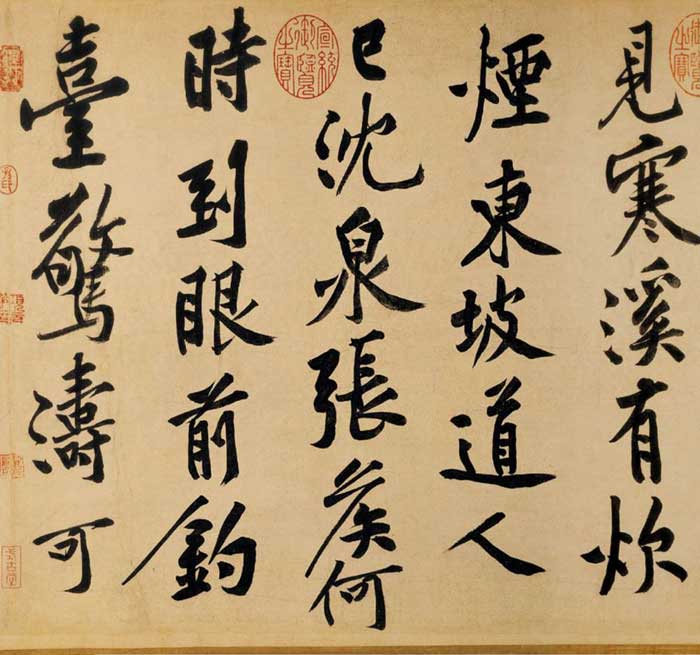 見寒溪有炊
煙東坡道人
已沈泉張侯何
時到眼前釣
臺驚濤可
宣統
御覽
之寶